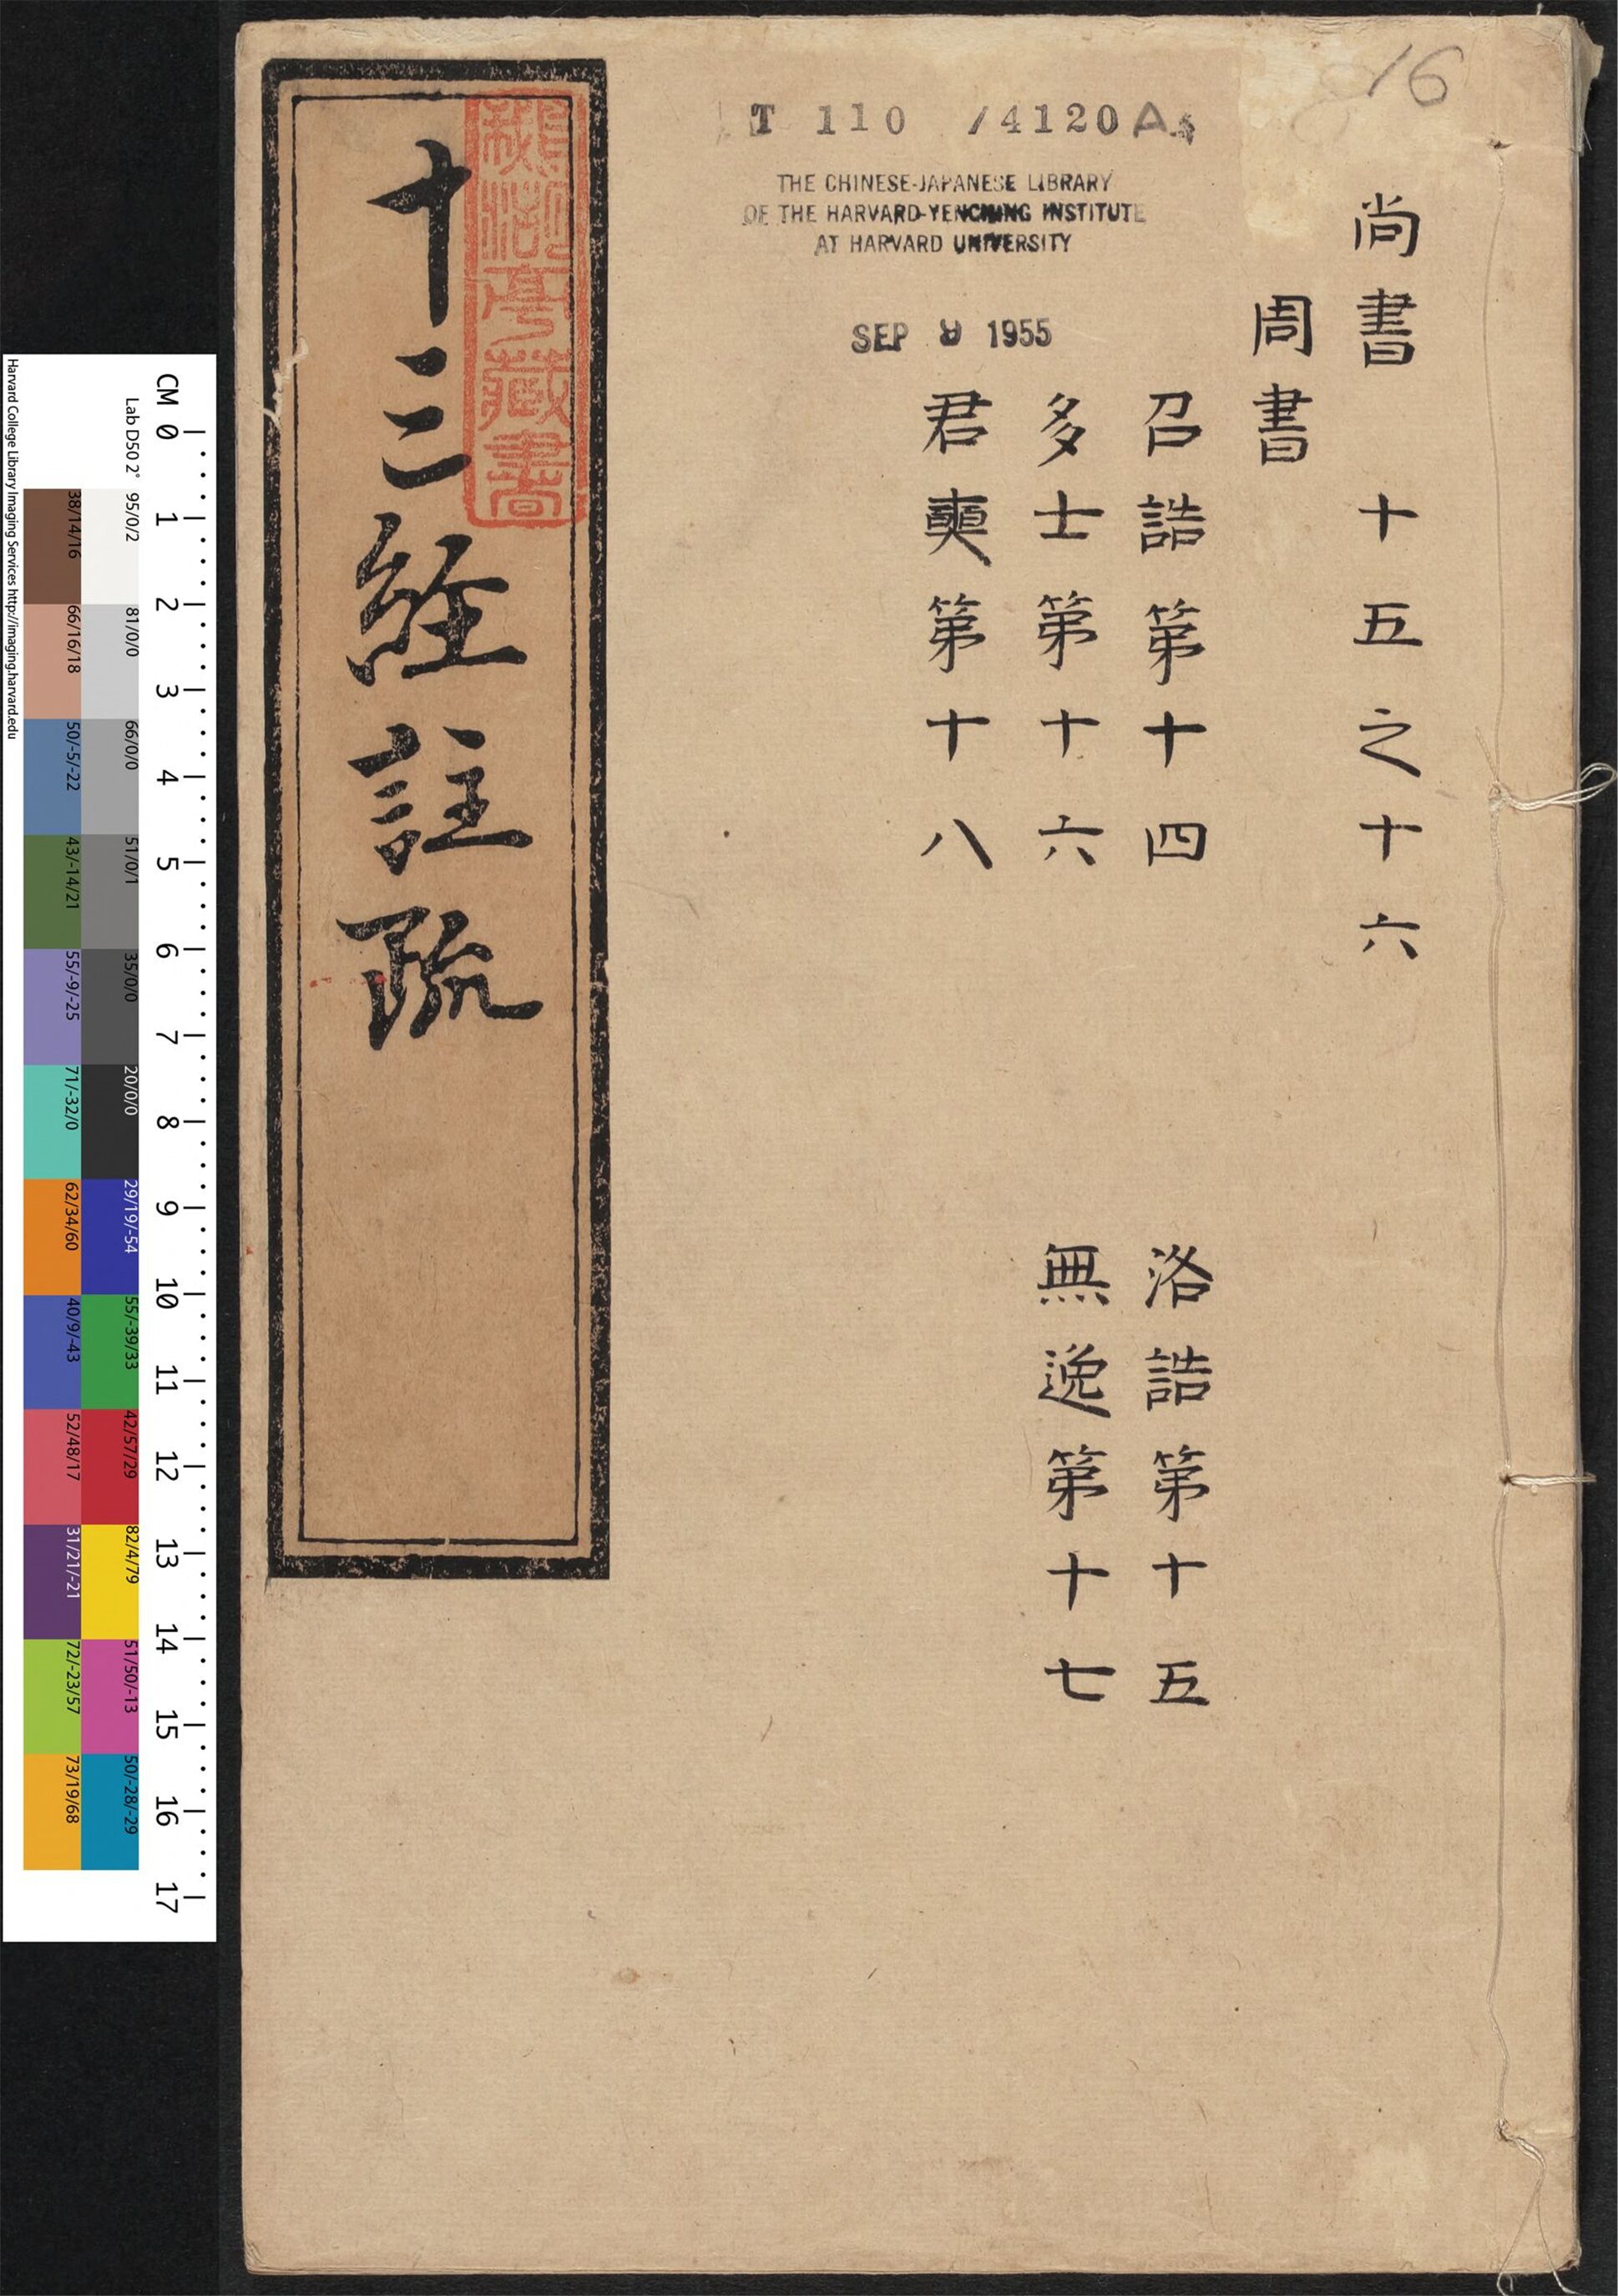 16
T 110 /4120A
THE CHINESE-JAPANESE LIBRARY
OF THE HARVARD-YENCHING INSTITUTE
AT HARVARD UNIVERSITY
SEP 9 1955
尚書 十五之十六
周書
召誥第十四 洛誥第十五
多士第十六 無逸第十七
君奭第十八
十三經註疏
亭藏書
CM 0 1 2 3 4 5 6 7 8 9 10 11 12 13 14 15 16 17
Lab D50 2°
95/0/2
81/0/0
66/0/0
51/0/1
35/0/0
20/0/0
29/19/-54
55/-39/33
42/57/29
82/4/79
51/50/-13
50/-28/-29
38/14/16
66/16/18
50/-5/-22
43/-14/21
55/-9/-25
71/-32/0
62/34/60
40/9/-43
52/48/17
31/21/-21
72/-23/57
73/19/68
Harvard College Library Imaging Services http://imaging.harvard.edu